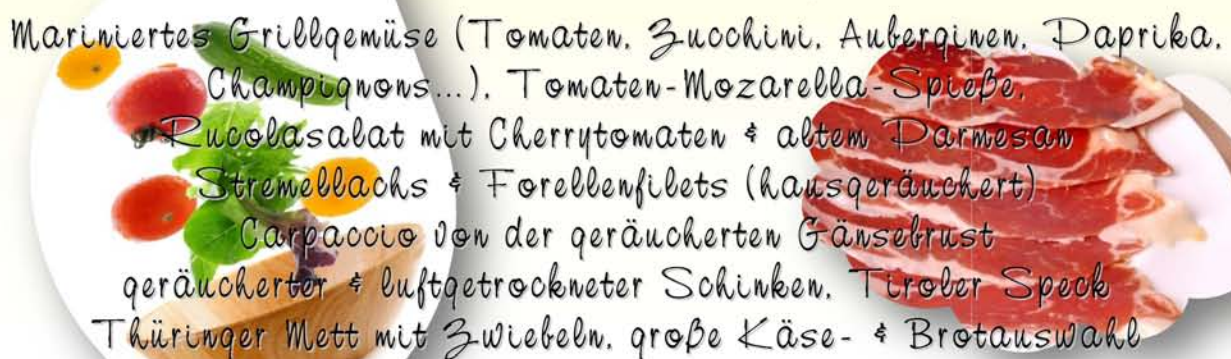 Mariniertes Grillgemüse (Tomaten, Zucchini, Auberginen, Paprika,
Champignons...), Tomaten-Mozarella-Spieße,
Rucolasalat mit Cherrytomaten & altem Parmesan
Stremellachs & Forellenfilets (hausgeräuchert)
Carpaccio von der geräucherten Gänsebrust
geräucherter & luftgetrockneter Schinken, Tiroler Speck
Thüringer Mett mit Zwiebeln, große Käse- & Brotauswahl